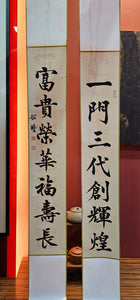 一門三代創輝煌
富貴榮華福壽長